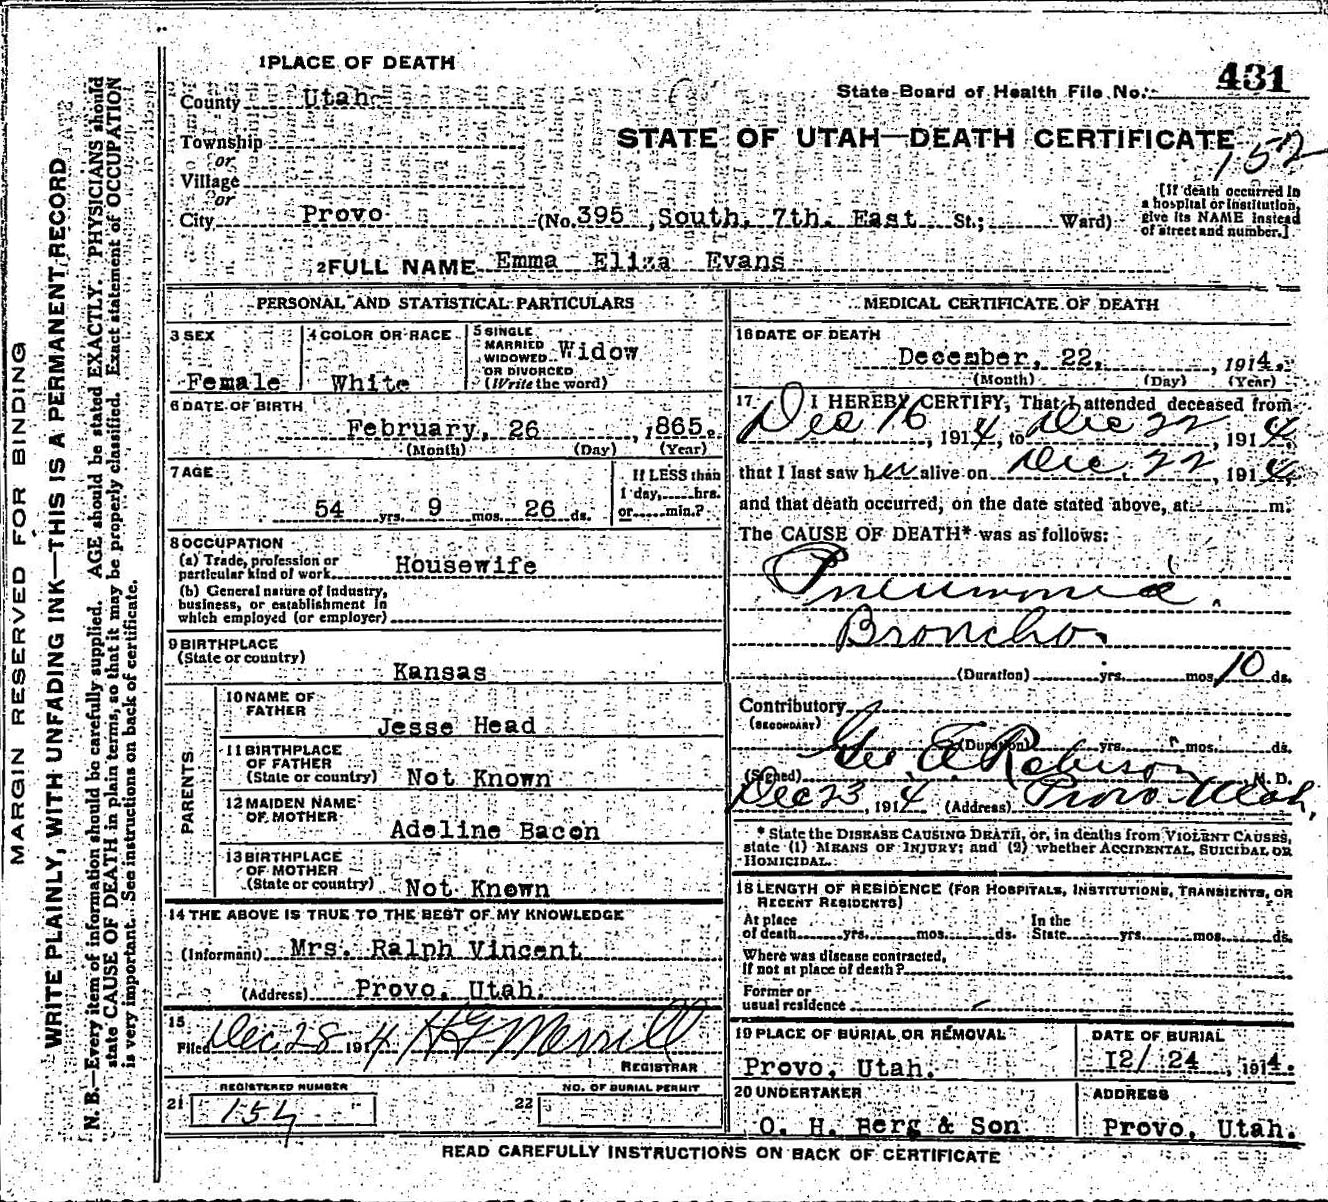 1 PLACE OF DEATH
County Utah
State Board of Health File No. 431
Township
or
STATE OF UTAH—DEATH CERTIFICATE
152
Village
or
[If death occurred in a hospital or institution, give its NAME instead of street and number.]
City Provo (No. 395, South, 7th. East St.; Ward)
2 FULL NAME Emma Eliza Evans
PERSONAL AND STATISTICAL PARTICULARS
3 SEX
Female
4 COLOR OR RACE
White
5 SINGLE
MARRIED
WIDOWED Widow
OR DIVORCED
(Write the word)
6 DATE OF BIRTH
February, 26, 1865.
(Month) (Day) (Year)
7 AGE
54 yrs. 9 mos. 26 ds.
If LESS than
1 day,......hrs.
or......min.?
8 OCCUPATION
(a) Trade, profession or
particular kind of work Housewife
(b) General nature of industry,
business, or establishment in
which employed (or employer)
9 BIRTHPLACE
(State or country)
Kansas
PARENTS
10 NAME OF
FATHER
Jesse Head
11 BIRTHPLACE
OF FATHER
(State or country) Not Known
12 MAIDEN NAME
OF MOTHER
Adeline Bacon
13 BIRTHPLACE
OF MOTHER
(State or country) Not Known
14 THE ABOVE IS TRUE TO THE BEST OF MY KNOWLEDGE
(Informant) Mrs. Ralph Vincent
(Address) Provo, Utah.
15
Filed Dec 28 1914 H G Merrill
REGISTRAR
REGISTERED NUMBER
21 154
NO. OF BURIAL PERMIT
22
MEDICAL CERTIFICATE OF DEATH
16 DATE OF DEATH
December, 22, , 1914.
(Month) (Day) (Year)
17 I HEREBY CERTIFY, That I attended deceased from
Dec 16, 1914, to Dec 22, 1914,
that I last saw her alive on Dec, 22, 1914,
and that death occurred, on the date stated above, at......m.
The CAUSE OF DEATH* was as follows:
Pneumonia
Broncho.
(Duration) yrs. mos. 10 ds.
Contributory
(SECONDARY)
(Duration) yrs. mos. ds.
(Signed) Geo. E. Robison M. D.
Dec 23, 1914 (Address) Provo Utah,
* State the DISEASE CAUSING DEATH, or, in deaths from VIOLENT CAUSES,
state (1) MEANS OF INJURY; and (2) whether ACCIDENTAL, SUICIDAL OR
HOMICIDAL.
18 LENGTH OF RESIDENCE (FOR HOSPITALS, INSTITUTIONS, TRANSIENTS, OR
RECENT RESIDENTS)
At place
of death......yrs......mos......ds.
In the
State......yrs......mos......ds.
Where was disease contracted,
If not at place of death?
Former or
usual residence
19 PLACE OF BURIAL OR REMOVAL
Provo, Utah.
DATE OF BURIAL
12/ 24, 1914.
20 UNDERTAKER
O. H. Berg & Son
ADDRESS
Provo, Utah.
READ CAREFULLY INSTRUCTIONS ON BACK OF CERTIFICATE
MARGIN RESERVED FOR BINDING
WRITE PLAINLY, WITH UNFADING INK—THIS IS A PERMANENT RECORD
N. B.—Every item of information should be carefully supplied. AGE should be stated EXACTLY. PHYSICIANS should
state CAUSE OF DEATH in plain terms, so that it may be properly classified. Exact statement of OCCUPATION
is very important. See instructions on back of certificate.